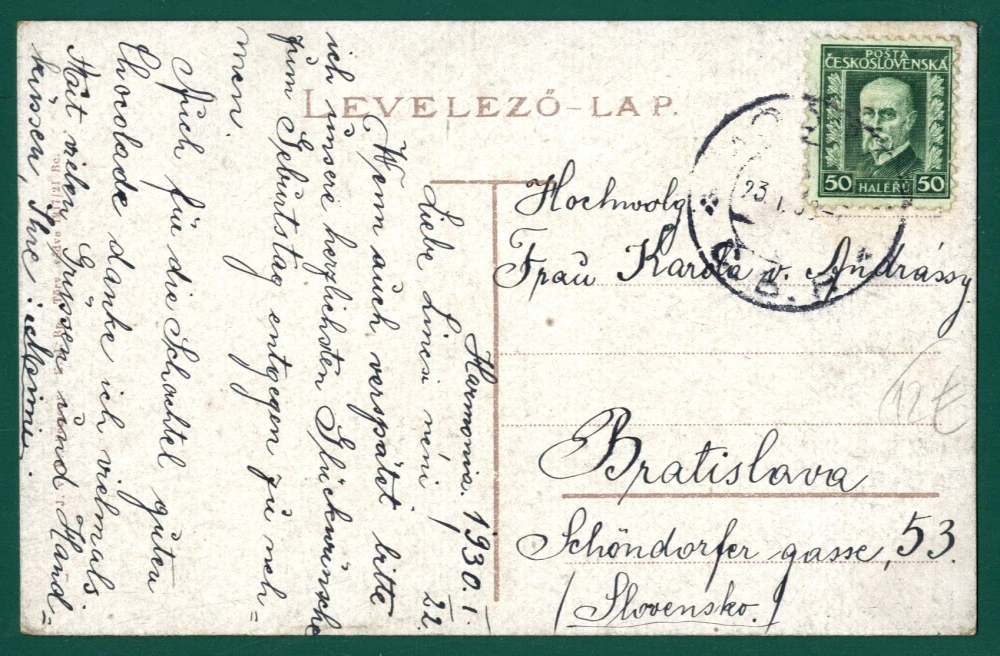 LEVELEZŐ-LAP.
POSTA
ČESKOSLOVENSKÁ
50 HALERŮ 50
23.I.
Hochwolg
Frau Karola v. Andrássy
Bratislava
Schöndorfer gasse, 53.
/Slovensko./
12 €
Harmonia. 1930. I./22.
Liebe Lincsi néni!
Wenn auch verspätet bitte
ich unsere herzlichsten Glückwünsche
zum Geburtstag entgegen zu neh=
men.
Auch für die Schachtel guten
Chocolade danke ich vielmals.
Mit vielen Grüssen und Hand=
küssen, Ihre: